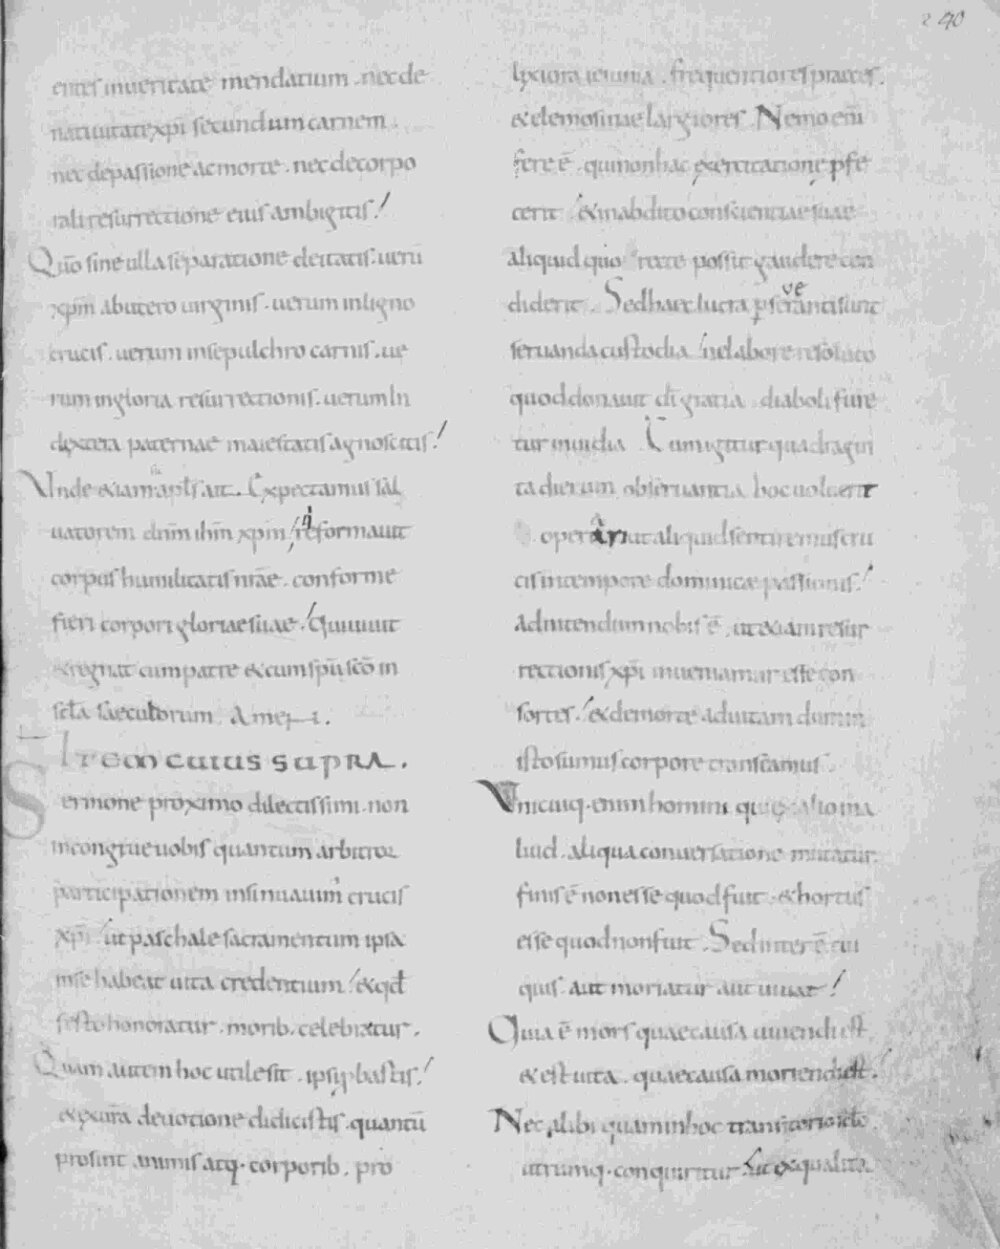 240
entes in ueritate mendatium . nec de
natiuitate xp̄i secundum carnem .
nec de passione ac morte . nec de corpo
rali resurrectione eius ambigitis !
Quō sine ulla separatione deitatis : uerū
xp̄m ab utero uirginis . uerum in ligno
crucis . uerum in sepulchro carnis . ue
rum in gloria resurrectionis . uerum In
dextera paternae maiestatis agnoscitis !
Vnde etiam apl̄s ait . Expectamus sal
uatorem dn̄m ihm̄ xp̄m / reformauit
corpus humilitatis nr̄ae . conforme
fieri corpori gloriae suae . Qui uiuit
& regnat cum patre & cum sp̄u sc̄o in
sc̄la saeculorum . Amen .
Item cuius supra .
Sermone proximo dilectissimi . non
incongrue uobis quantum arbitror
participationem insinuauim' crucis
xp̄i / ut paschale sacramentum ipsa
in se habeat uita credentium / & qđ
festo honoratur . morib . celebratur .
Quam autem hoc utile sit . ipsi pbastis !
& ex ur̄a deuotione didicistis . quantū
prosint animis atq . corporib . pro
lixiora ieiunia . frequentiores praeces .
& elemosinae largiores . Nemo eni̅
fere ē . qui non hac exercitatione pfe
cerit / & in abdito conscientiae suae
aliquid quo recte possit gaudere con
diderit . Sed haec lucra pseueranti sunt
seruanda custodia / ne labore resoluto
quod donauit dī gratia . diaboli fure
tur inuidia . Cum igitur quadragin
ta dierum obseruantia hoc uoluerit
operari ut aliquid sentiremus cru
cis in tempore dominicae passionis !
adnitendum nobis ē . ut etiam resur
rectionis xp̄i inueniamur esse con
sortes . / & de morte ad uitam dum in
isto sumus corpore transeamus .
Vnicuiq . enim homini qui ex alio in a
liud . aliqua conuersatione mutatur .
finis ē non esse quod fuit . & hortus
esse quod non fuit . Sed interē cui
quis . aut moriatur aut uiuat !
Quia ē mors quae causa uiuendi est
& est uita . quae causa moriendi est .
Nec alibi quam in hoc transitorio sc̄lo
utrumq . conquiritur / ut ex qualita